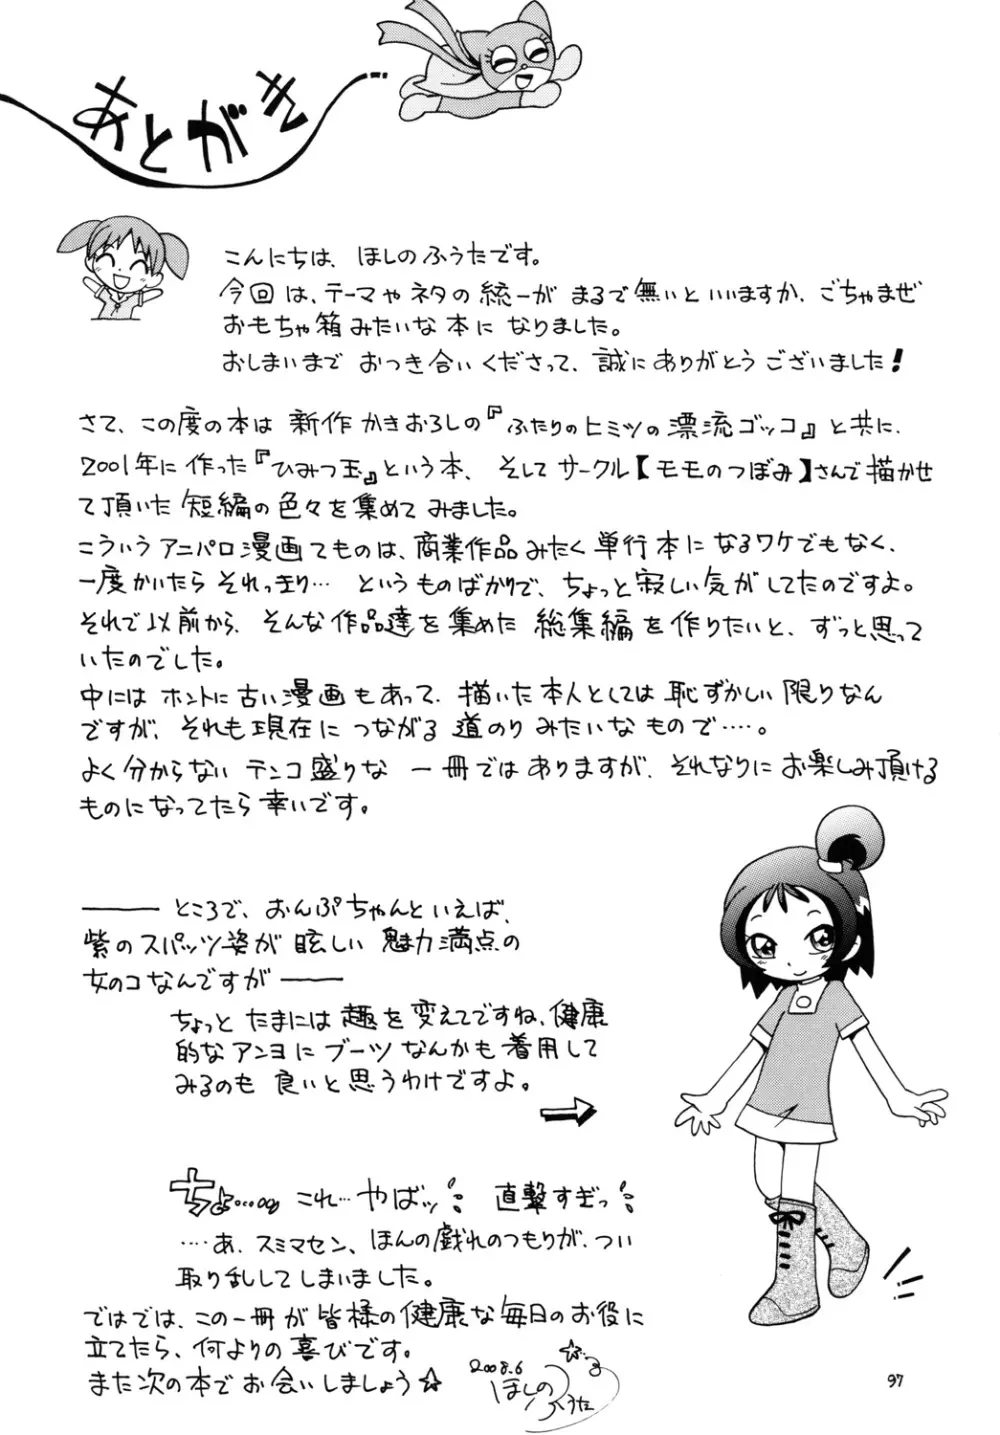 あとがき
こんにちは、ほしのふうたです。
今回は、テーマやネタの統一がまるで無いといいますか、ごちゃまぜ
おもちゃ箱みたいな本になりました。
おしまいまでおつき合いくださって、誠にありがとうございました!
さて、この度の本は新作かきおろしの『ふたりのヒミツの漂流ゴッコ』と共に、
2001年に作った『ひみつ玉』という本、そしてサークル【モモのつぼみ】さんで描かせ
て頂いた短編の色々を集めてみました。
こういうアニパロ漫画てものは、商業作品みたく単行本になるワケでもなく、
一度かいたらそれっきり… というものばかりで、ちょっと寂しい気がしてたのですよ。
それで以前から、そんな作品達を集めた総集編を作りたいと、ずっと思って
いたのでした。
中にはホントに古い漫画もあって、描いた本人としては恥ずかしい限りなん
ですが、それも現在につながる道のりみたいなもので……。
よく分からないテンコ盛りな一冊ではありますが、それなりにお楽しみ頂ける
ものになってたら幸いです。
――ところで、おんぷちゃんといえば、
紫のスパッツ姿が眩しい魅力満点の
女のコなんですが――
ちょっとたまには趣を変えてですね、健康
的なアンヨにブーツなんかも着用して
みるのも良いと思うわけですよ。
ちょ…… これ…やばッ!! 直撃すぎっ!!
……あ、スミマセン、ほんの戯れのつもりが、つい
取り乱してしまいました。
ではでは、この一冊が皆様の健康な毎日のお役に
立てたら、何よりの喜びです。
また次の本でお会いしましょう☆
2008.6
ほしのふうた
97